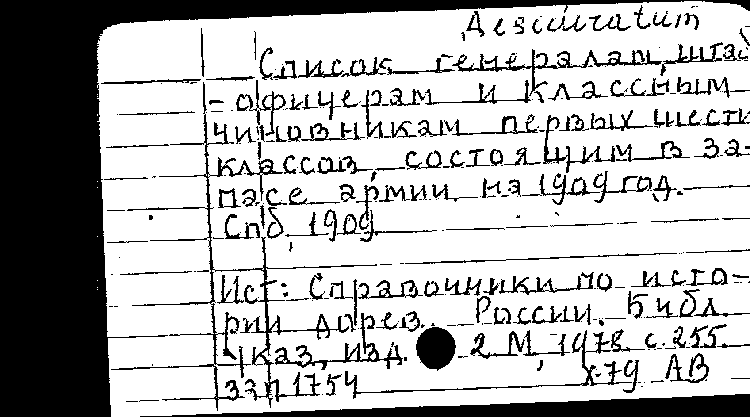 Desideratum
Список генералам, штаб
-офицерам и классным
чиновникам первых шести
классов, состоящим в за-
пасе армии. на 1909 год.
Спб, 1909.
Ист: Справочники по исто-
рии дорев. России. Библ.
указ, изд. 2 М, 1978. с.255.
ззп 1754 X-79 АВ